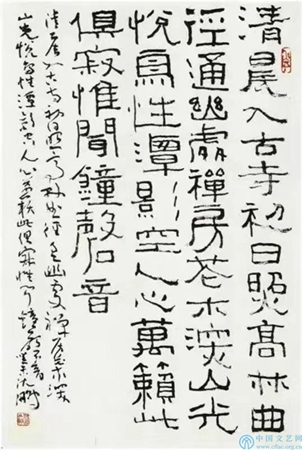 清晨入古寺初日照高林曲
徑通幽處禪房花木深山光
悅鳥性潭影空人心萬籟此
俱寂惟聞鐘磬音
清晨入古寺初日照高林徑通幽處禪房花木深
山光悅鳥性潭影空人心萬籟此俱寂惟聞鐘磬音 沈鵬
中国文艺网
www.cflac.org.cn